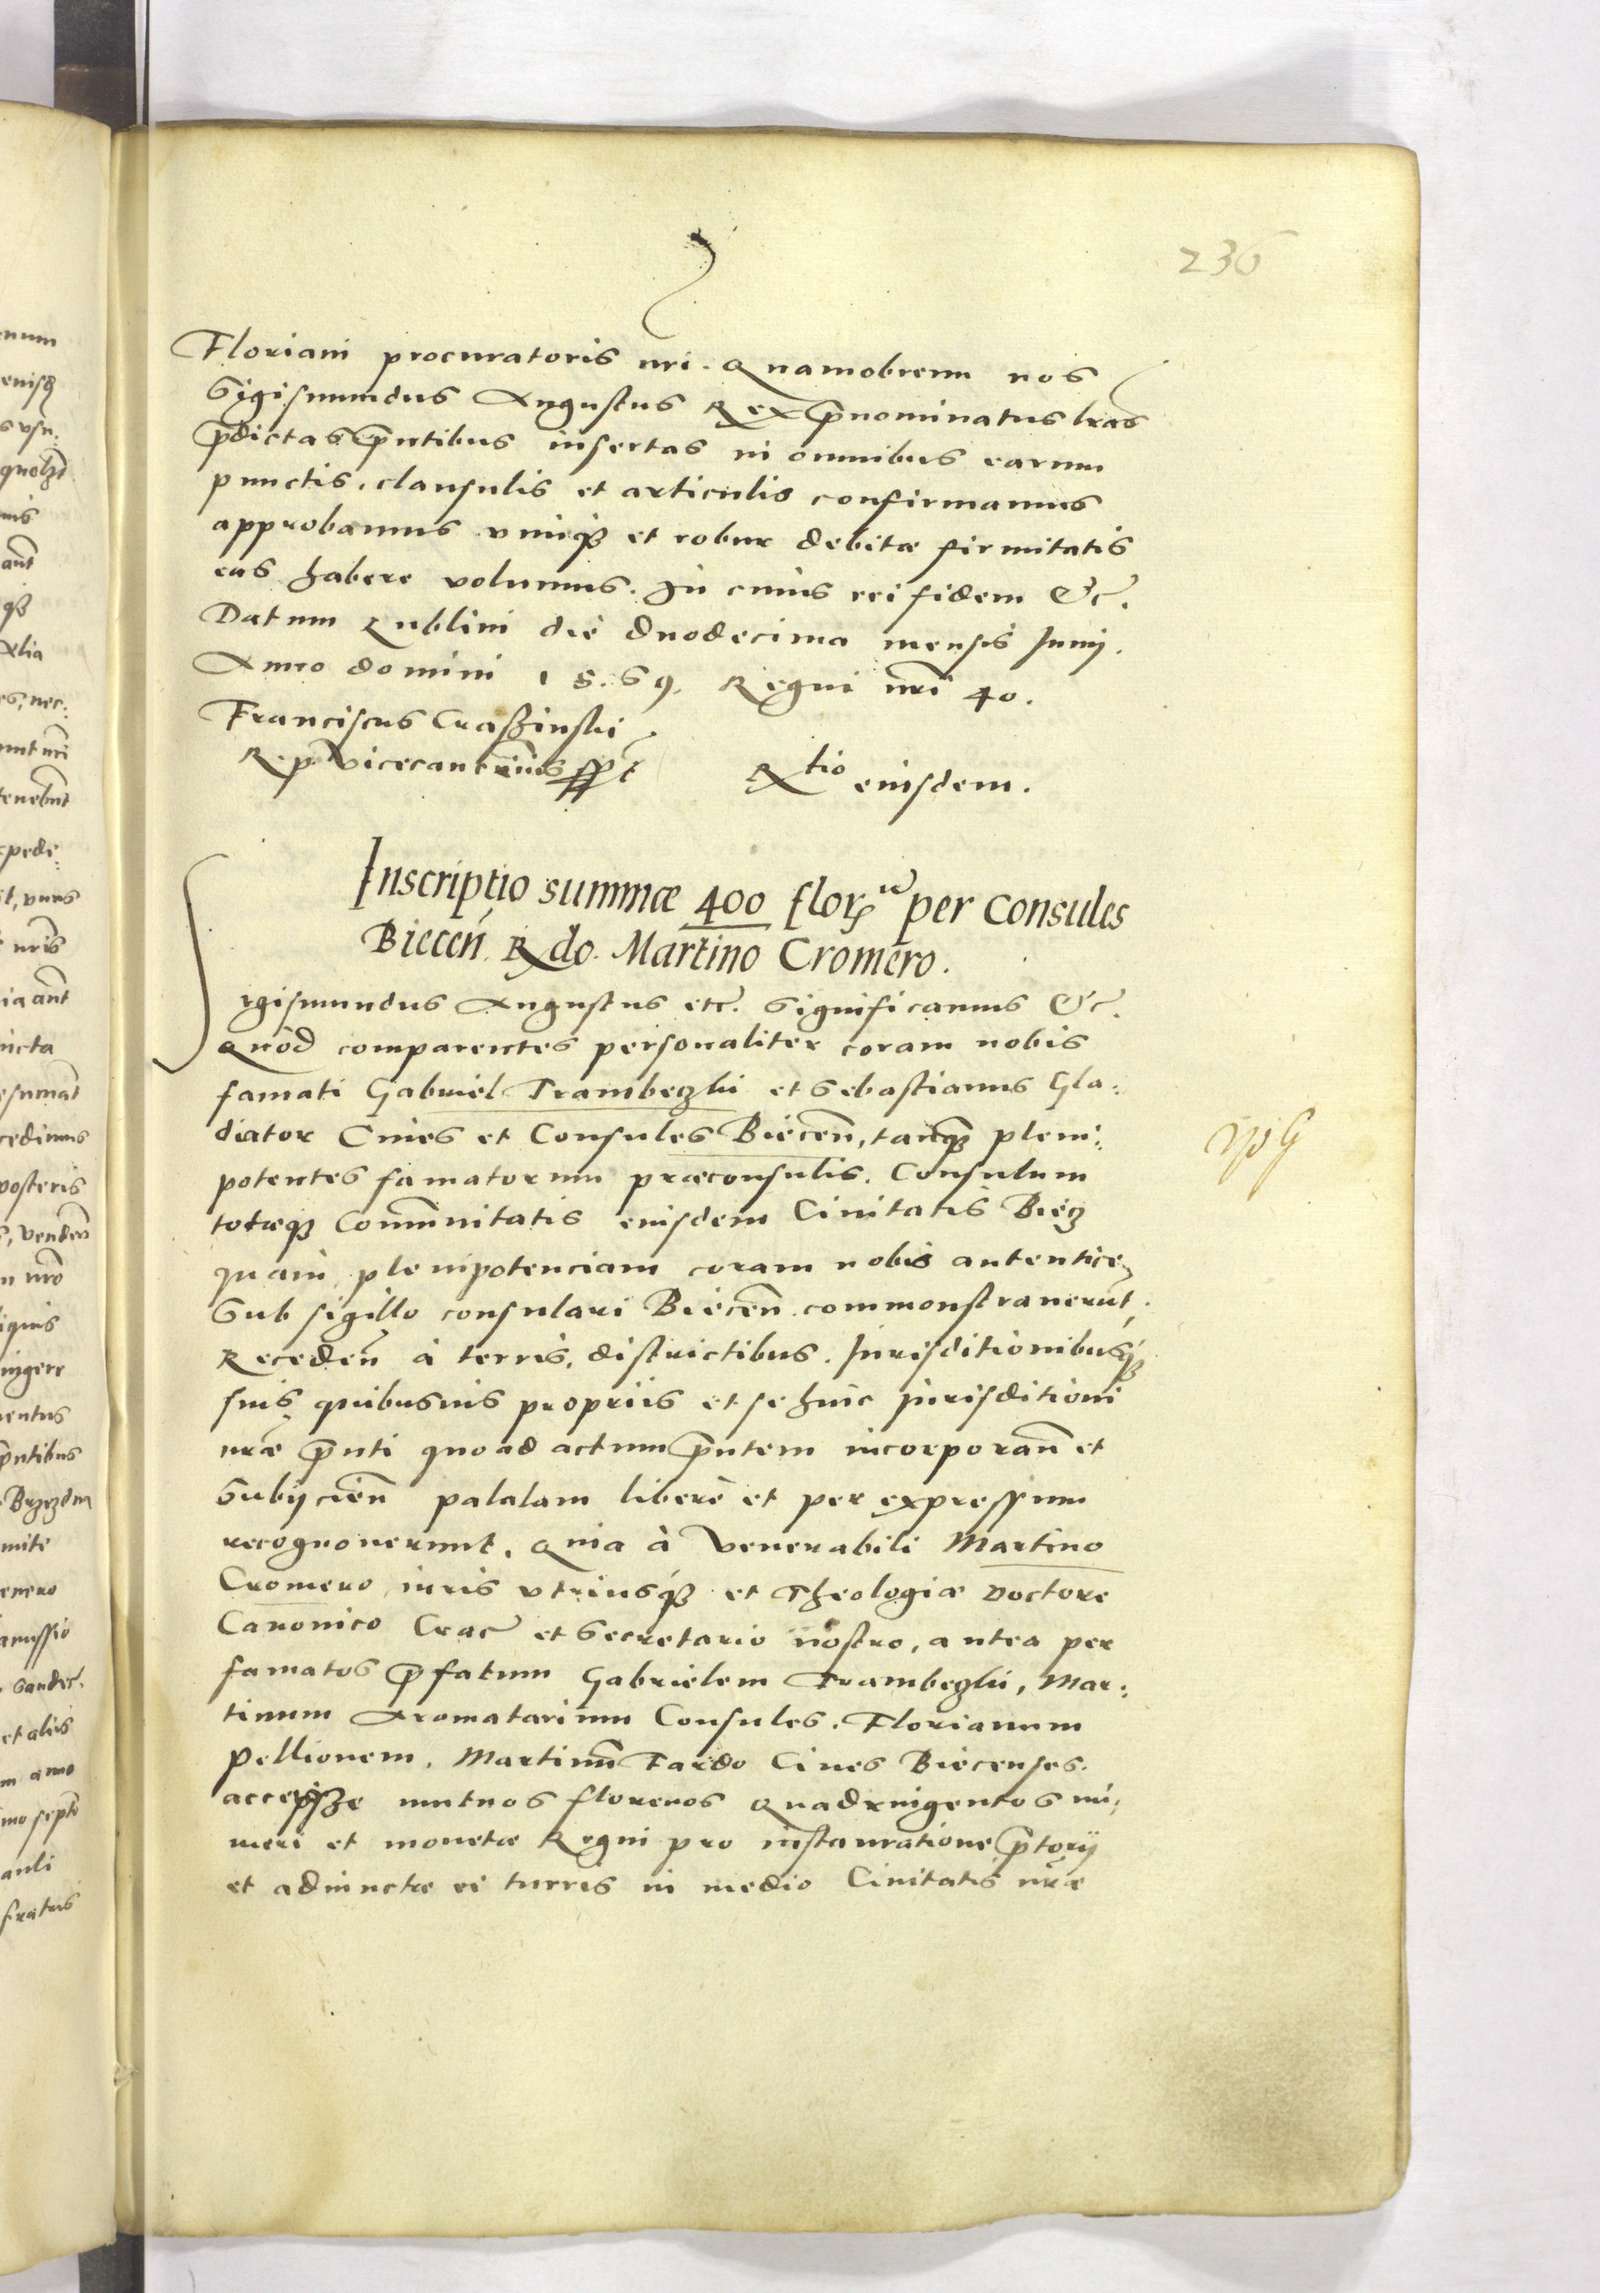 236
Floriani procuratoris nri. Quamobrem nos
Sigismundus Augustus Rex prnominatus lras
prdictas prntibus insertas in omnibus earum
punctis, clausulis et articulis confirmamus
approbamus vimq₃ et robur debitæ firmitatis
eas habere volumus. In cuius rei fidem &c.
Datum Lublini die duodecima mensis Junij.
Anno domini 1569. Regni nri 40.
Franciscus Craszinski
R. p. Vicecancrius sspt Rtio eiusdem.
Inscriptio summæ 400 flor per Consules
Biecen Rdo. Martino Cromero.
Sigismundus Augustus etc. Significamus &c.
Quòd comparentes personaliter coram nobis
famati Gabriel Trambeczki et Sebastianus Gla:
diator Ciues et Consules Biecen, tanq₃ pleni:
potentes famatorum præconsulis, Consulum
totæq₃ Comunitatis eiusdem Ciuitatis Biecz
quam plenipotenciam coram nobis autentice
Sub sigillo consulari Biecen commonstrauerut,
Receden à terris, districtibus, Jurisditionibusq₃
suis quibusuis propriis et se huic Jurisditioni
nræ prnti quoad actum prntem incorporan et
Subijcien palalam liberè et per expressum
recognouerunt. Quia à Venerabili Martino
Cromero iuris vtriusq₃ et Theologiæ Doctore
Canonico Crac et Secretario nostro, antea per
famatos prfatum Gabrielem Trambeczki, Mar:
tinum Aromatarium Consules, Florianum
Pellionem, Martinu Fardo Ciues Biecenses
accepisze mutuos florenos Quadringentos nu:
meri et monetæ Regni pro instauratione prtorij
et adiunctæ ei turris in medio Ciuitatis nræ